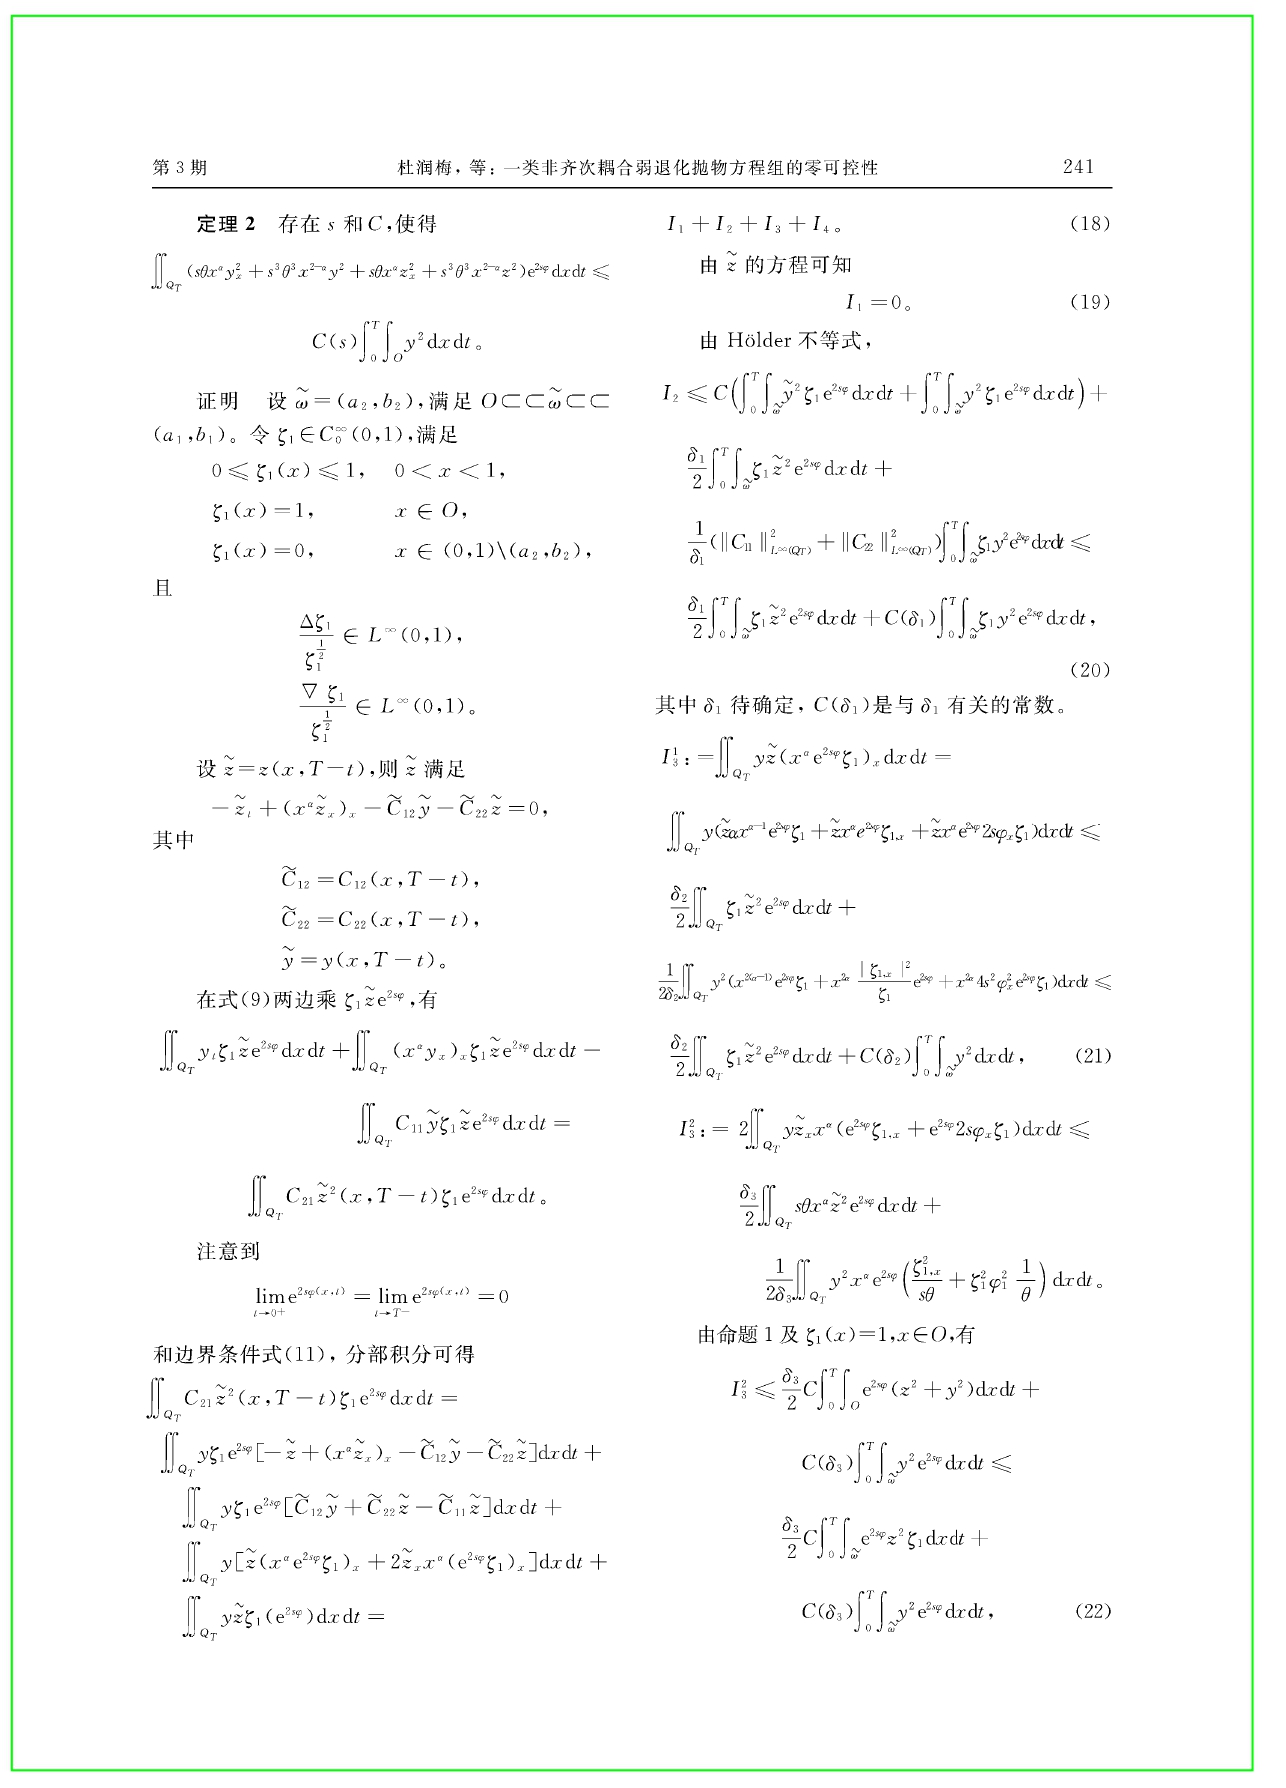 第 3 期 杜润梅，等：一类非齐次耦合弱退化抛物方程组的零可控性 241
定理 2 存在 s 和 C,使得
∬_{Q_T} (sθx^α y_x^2 + s^3θ^3x^{2-α}y^2 + sθx^α z_x^2 + s^3θ^3x^{2-α}z^2)e^{2sφ}dxdt ≤
C(s)∫_0^T∫_O y^2dxdt。
证明 设 ω̃ = (a_2,b_2),满足 O⊂⊂ω̃⊂⊂
(a_1,b_1)。令 ζ_1∈C_0^∞(0,1),满足
0 ≤ ζ_1(x) ≤ 1, 0 < x < 1,
ζ_1(x) = 1, x ∈ O,
ζ_1(x) = 0, x ∈ (0,1)\(a_2,b_2),
且
Δζ_1/ζ_1^{1/2} ∈ L^∞(0,1),
▽ζ_1/ζ_1^{1/2} ∈ L^∞(0,1)。
设 z̃=z(x,T-t),则 z̃ 满足
-z̃_t + (x^α z̃_x)_x - C̃_{12}ỹ - C̃_{22}z̃ = 0,
其中
C̃_{12} = C_{12}(x,T-t),
C̃_{22} = C_{22}(x,T-t),
ỹ = y(x,T-t)。
在式(9)两边乘 ζ_1z̃e^{2sφ},有
∬_{Q_T} y_tζ_1z̃e^{2sφ}dxdt + ∬_{Q_T} (x^α y_x)_xζ_1z̃e^{2sφ}dxdt -
∬_{Q_T} C_{11}ỹζ_1z̃e^{2sφ}dxdt =
∬_{Q_T} C_{21}z̃^2(x,T-t)ζ_1e^{2sφ}dxdt。
注意到
lim_{t→0+} e^{2sφ(x,t)} = lim_{t→T-} e^{2sφ(x,t)} = 0
和边界条件式(11)，分部积分可得
∬_{Q_T} C_{21}z̃^2(x,T-t)ζ_1e^{2sφ}dxdt =
∬_{Q_T} yζ_1e^{2sφ}[-z̃ + (x^α z̃_x)_x - C̃_{12}ỹ - C̃_{22}z̃]dxdt +
∬_{Q_T} yζ_1e^{2sφ}[C̃_{12}ỹ + C̃_{22}z̃ - C̃_{11}z̃]dxdt +
∬_{Q_T} y[z̃(x^α e^{2sφ}ζ_1)_x + 2z̃_x x^α(e^{2sφ}ζ_1)_x]dxdt +
∬_{Q_T} yz̃ζ_1(e^{2sφ})dxdt =
I_1 + I_2 + I_3 + I_4。 (18)
由 z̃ 的方程可知
I_1 = 0。 (19)
由 Hölder 不等式，
I_2 ≤ C(∫_0^T∫_{ω̃} ỹ^2ζ_1e^{2sφ}dxdt + ∫_0^T∫_{ω̃} y^2ζ_1e^{2sφ}dxdt) +
δ_1/2 ∫_0^T∫_{ω̃} ζ_1z̃^2e^{2sφ}dxdt +
1/δ_1 (‖C_{11}‖^2_{L^∞(Q_T)} + ‖C_{22}‖^2_{L^∞(Q_T)})∫_0^T∫_{ω̃} ζ_1y^2e^{2sφ}dxdt ≤
δ_1/2 ∫_0^T∫_{ω̃} ζ_1z̃^2e^{2sφ}dxdt + C(δ_1)∫_0^T∫_{ω̃} ζ_1y^2e^{2sφ}dxdt,
(20)
其中 δ_1 待确定，C(δ_1)是与 δ_1 有关的常数。
I_3^1: = ∬_{Q_T} yz̃(x^α e^{2sφ}ζ_1)_xdxdt =
∬_{Q_T} y(z̃αx^{α-1}e^{2sφ}ζ_1 + z̃x^α e^{2sφ}ζ_{1,x} + z̃x^α e^{2sφ}2sφ_xζ_1)dxdt ≤
δ_2/2 ∬_{Q_T} ζ_1z̃^2e^{2sφ}dxdt +
1/2δ_2 ∬_{Q_T} y^2(x^{2(α-1)}e^{2sφ}ζ_1 + x^{2α} |ζ_{1,x}|^2/ζ_1 e^{2sφ} + x^{2α}4s^2φ_x^2e^{2sφ}ζ_1)dxdt ≤
δ_2/2 ∬_{Q_T} ζ_1z̃^2e^{2sφ}dxdt + C(δ_2)∫_0^T∫_{ω̃} y^2dxdt, (21)
I_3^2: = 2∬_{Q_T} yz̃_x x^α(e^{2sφ}ζ_{1,x} + e^{2sφ}2sφ_xζ_1)dxdt ≤
δ_3/2 ∬_{Q_T} sθx^α z̃^2e^{2sφ}dxdt +
1/2δ_3 ∬_{Q_T} y^2x^α e^{2sφ}(ζ_{1,x}^2/sθ + ζ_1^2φ_1^2 1/θ)dxdt。
由命题 1 及 ζ_1(x)=1,x∈O,有
I_3^2 ≤ δ_3/2 C∫_0^T∫_O e^{2sφ}(z^2 + y^2)dxdt +
C(δ_3)∫_0^T∫_{ω̃} y^2e^{2sφ}dxdt ≤
δ_3/2 C∫_0^T∫_{ω̃} e^{2sφ}z^2ζ_1dxdt +
C(δ_3)∫_0^T∫_{ω̃} y^2e^{2sφ}dxdt, (22)